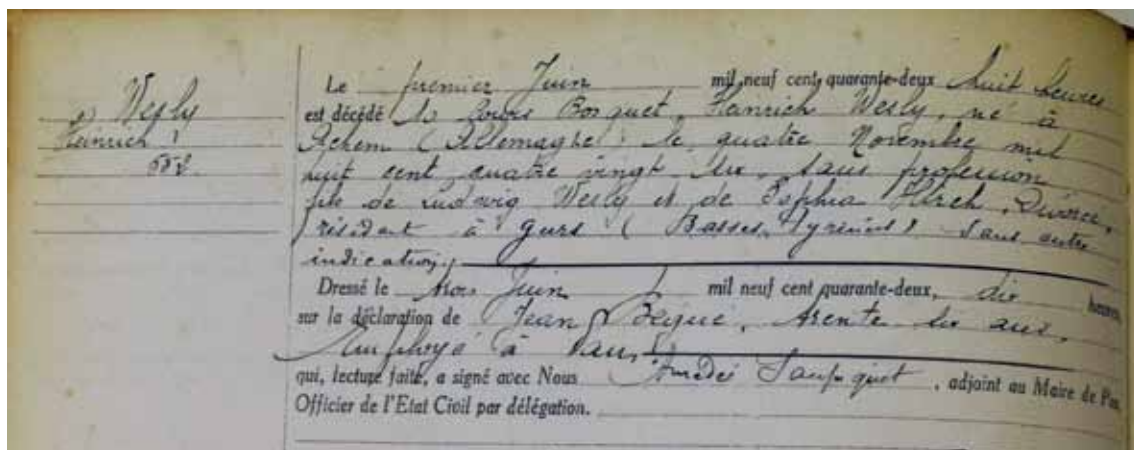 Wesly
Heinrich
Le premier Juin mil neuf cent quarante-deux huit heures
est décédé 10 Cours Bosquet, Heinrich Wesly, né à
Achem (Allemagne) le quatre Novembre mil
huit cent quatre vingt dix, sans profession
fils de Ludwig Wesly et de Sophia Hirch, Divorcé,
résidant à Gurs (Basses Pyrénées) sans autre
indication,
Dressé le trois Juin mil neuf cent quarante-deux, dix heures
sur la déclaration de Jean Bégué, trente six ans,
Employé à Pau,
qui, lecture faite, a signé avec Nous Amédée , adjoint au Maire de Pau,
Officier de l'Etat Civil par délégation.